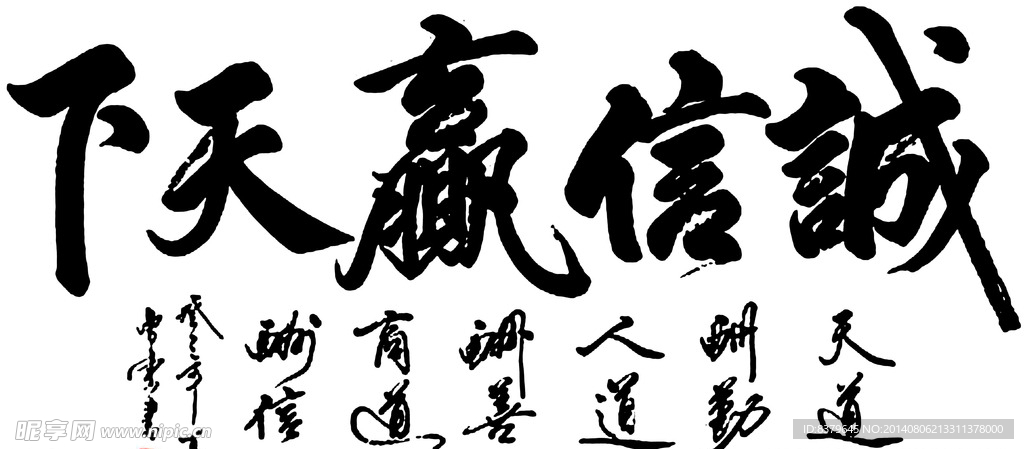 誠信贏天下
天道
酬勤
人道
酬善
商道
酬信
昵享网 www.nipic.cn
ID:8379645 NO:20140806213311378000